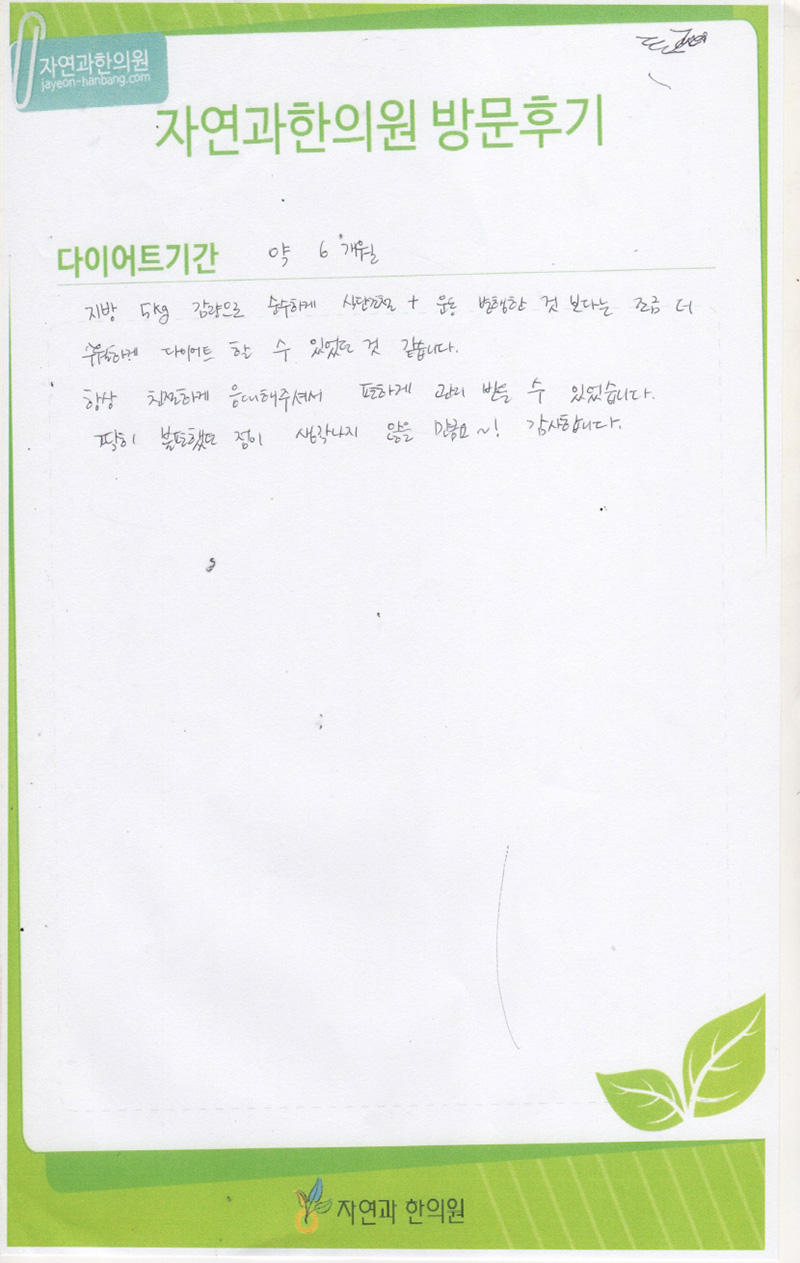 자연과한의원
jayeon-hanbang.com
자연과한의원 방문후기
다이어트기간 약 6개월
지방 5kg 감량으로 순수하게 식단조절 + 운동 병행한 것 보다는 조금 더
수월하게 다이어트 할 수 있었던 것 같습니다.
항상 친절하게 응대해주셔서 편하게 관리 받을 수 있었습니다.
딱히 불편했던 점이 생각나지 않을 만큼요~! 감사합니다.
자연과 한의원